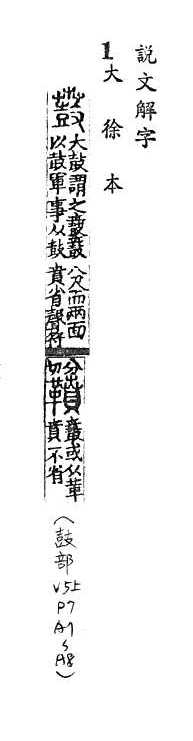 説文解字
1大徐本
鼖大鼓謂之鼖鼖八尺而兩面
以鼓軍事从鼓賁省聲符
分切
鼖或从革
賁不省
(鼓部 V5上 P7 A7 〜 A8)